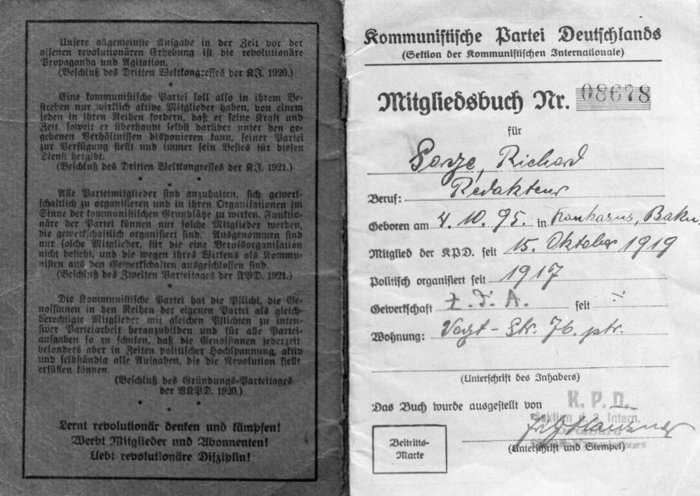 Unsere allgemeinste Aufgabe in der Zeit vor der
offenen revolutionären Erhebung ist die revolutionäre
Propaganda und Agitation.
(Beschluß des Dritten Weltkongresses der K.I. 1920.)
Eine kommunistische Partei soll also in ihrem Be-
streben nur wirklich aktive Mitglieder haben, von einem
jeden in ihren Reihen fordern, daß er seine Kraft und
Zeit, soweit er überhaupt selbst darüber unter den ge-
gebenen Verhältnissen disponieren kann, seiner Partei
zur Verfügung stellt und immer sein Bestes für diesen
Dienst hergibt.
(Beschluß des Dritten Weltkongresses der K.I. 1921.)
Alle Parteimitglieder sind anzuhalten, sich gewerk-
schaftlich zu organisieren und in ihren Organisationen im
Sinne der kommunistischen Grundsätze zu wirken. Funktio-
näre der Partei können nur solche Mitglieder werden,
die gewerkschaftlich organisiert sind. Ausgenommen sind
nur solche Mitglieder, für die eine Berufsorganisation
nicht besteht, und die wegen ihres Wirkens als Kommu-
nisten aus den Gewerkschaften ausgeschlossen sind.
(Beschluß des Zweiten Parteitages der KPD. 1921.)
Die Kommunistische Partei hat die Pflicht, die Ge-
nossinnen in den Reihen der eigenen Partei als gleich-
berechtigte Mitglieder mit gleichen Pflichten zu inten-
siver Parteiarbeit heranzubilden und für alle Partei-
aufgaben so zu schulen, daß die Genossinnen jederzeit
besonders aber in Zeiten politischer Hochspannung, aktiv
und selbständig alle Aufgaben, die die Revolution stellt
erfüllen können.
(Beschluß des Gründungs-Parteitages
der VKPD. 1920.)
Lernt revolutionär denken und kämpfen!
Werbt Mitglieder und Abonnenten!
Uebt revolutionäre Disziplin!
Kommunistische Partei Deutschlands
(Sektion der Kommunistischen Internationale)
Mitgliedsbuch Nr. 08678
für
Sorge, Richard
Beruf: Redakteur
Geboren am 4. 10. 95. in Kaukasus, Baku
Mitglied der KPD. seit 15. Oktober 1919
Politisch organisiert seit 1917
Gewerkschaft seit
Wohnung: Str. 76. ptr.
(Unterschrift des Inhabers)
Das Buch wurde ausgestellt von K. P. D.
Sektion d. 3. Intern.
Beitritts-
Marke
(Unterschrift und Stempel)